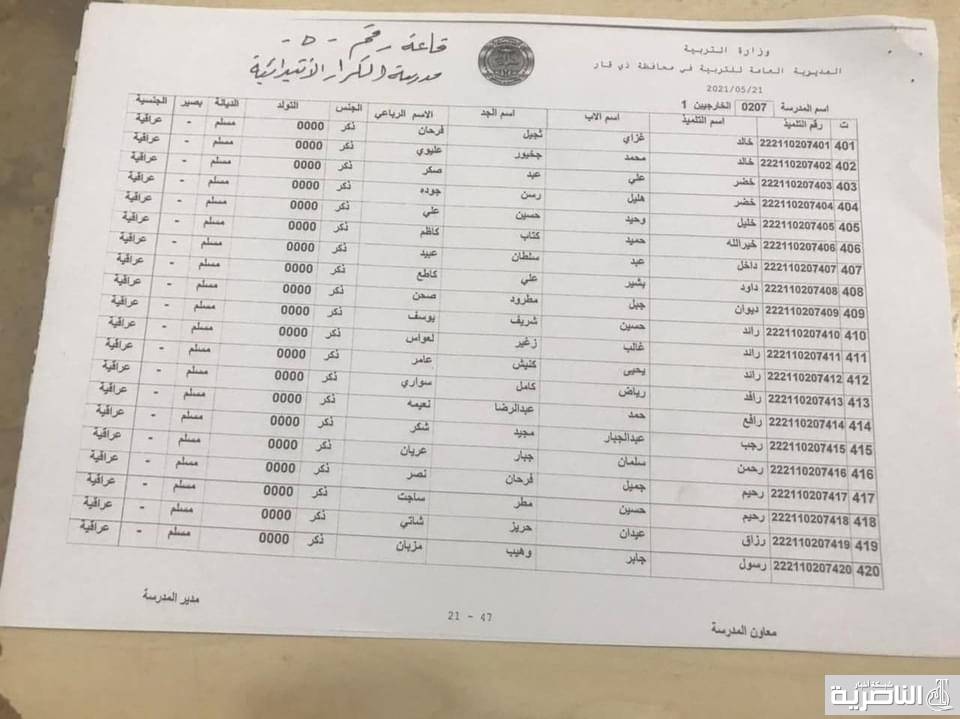 وزارة التربية
المديرية العامة للتربية في محافظة ذي قار
2021/05/21
قاعة رقم - ٥ -
مدرسة الكرار الأبتدائية
اسم المدرسة 0207 الخارجيين 1
ت رقم التلميذ اسم التلميذ اسم الاب اسم الجد الاسم الرباعي الجنس التولد الديانة بصير الجنسية
401 222110207401 خالد غزاي ثجيل فرحان ذكر 0000 مسلم - عراقية
402 222110207402 خالد محمد جخيور عليوي ذكر 0000 مسلم - عراقية
403 222110207403 خضر علي عبد صكر ذكر 0000 مسلم - عراقية
404 222110207404 خضر هليل رسن جوده ذكر 0000 مسلم - عراقية
405 222110207405 خليل وحيد حسين علي ذكر 0000 مسلم - عراقية
406 222110207406 خيرالله حميد كتاب كاظم ذكر 0000 مسلم - عراقية
407 222110207407 داخل عبد سلطان عبيد ذكر 0000 مسلم - عراقية
408 222110207408 داود بشير علي كاطع ذكر 0000 مسلم - عراقية
409 222110207409 ديوان جبل مطرود صحن ذكر 0000 مسلم - عراقية
410 222110207410 رائد حسين شريف يوسف ذكر 0000 مسلم - عراقية
411 222110207411 رائد غالب زغير لعواس ذكر 0000 مسلم - عراقية
412 222110207412 رائد يحيى كنيش عامر ذكر 0000 مسلم - عراقية
413 222110207413 رافد رياض كامل سواري ذكر 0000 مسلم - عراقية
414 222110207414 رافع حمد عبدالرضا نعيمه ذكر 0000 مسلم - عراقية
415 222110207415 رجب عبدالجبار مجيد شكر ذكر 0000 مسلم - عراقية
416 222110207416 رحمن سلمان جبار عريان ذكر 0000 مسلم - عراقية
417 222110207417 رحيم جميل فرحان نصر ذكر 0000 مسلم - عراقية
418 222110207418 رحيم حسين مطر ساجت ذكر 0000 مسلم - عراقية
419 222110207419 رزاق عيدان حريز شاتي ذكر 0000 مسلم - عراقية
420 222110207420 رسول جابر وهيب مزبان ذكر 0000 مسلم - عراقية
معاون المدرسة
21 - 47
مدير المدرسة
شبكة أخبار
الناصرية